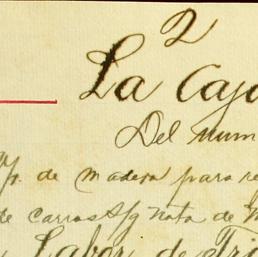 2
La Caja
Del num
de madera para re
de carros S/g Nota de
Labor de Tri